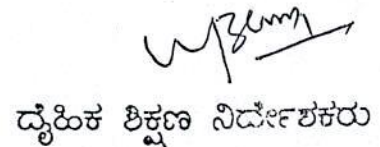 ದೈಹಿಕ ಶಿಕ್ಷಣ ನಿರ್ದೇಶಕರು